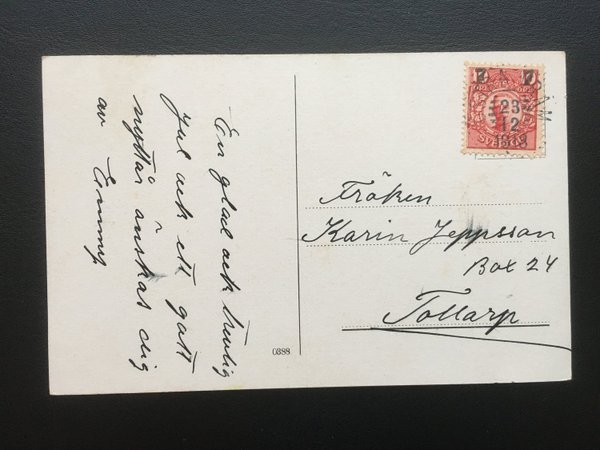 En glad och trevlig
Jul och ett gott
nyttår önskas dig
av Emmy
Fröken
Karin Jeppsson
Box 24
Tollarp
0388
7 7
23
12